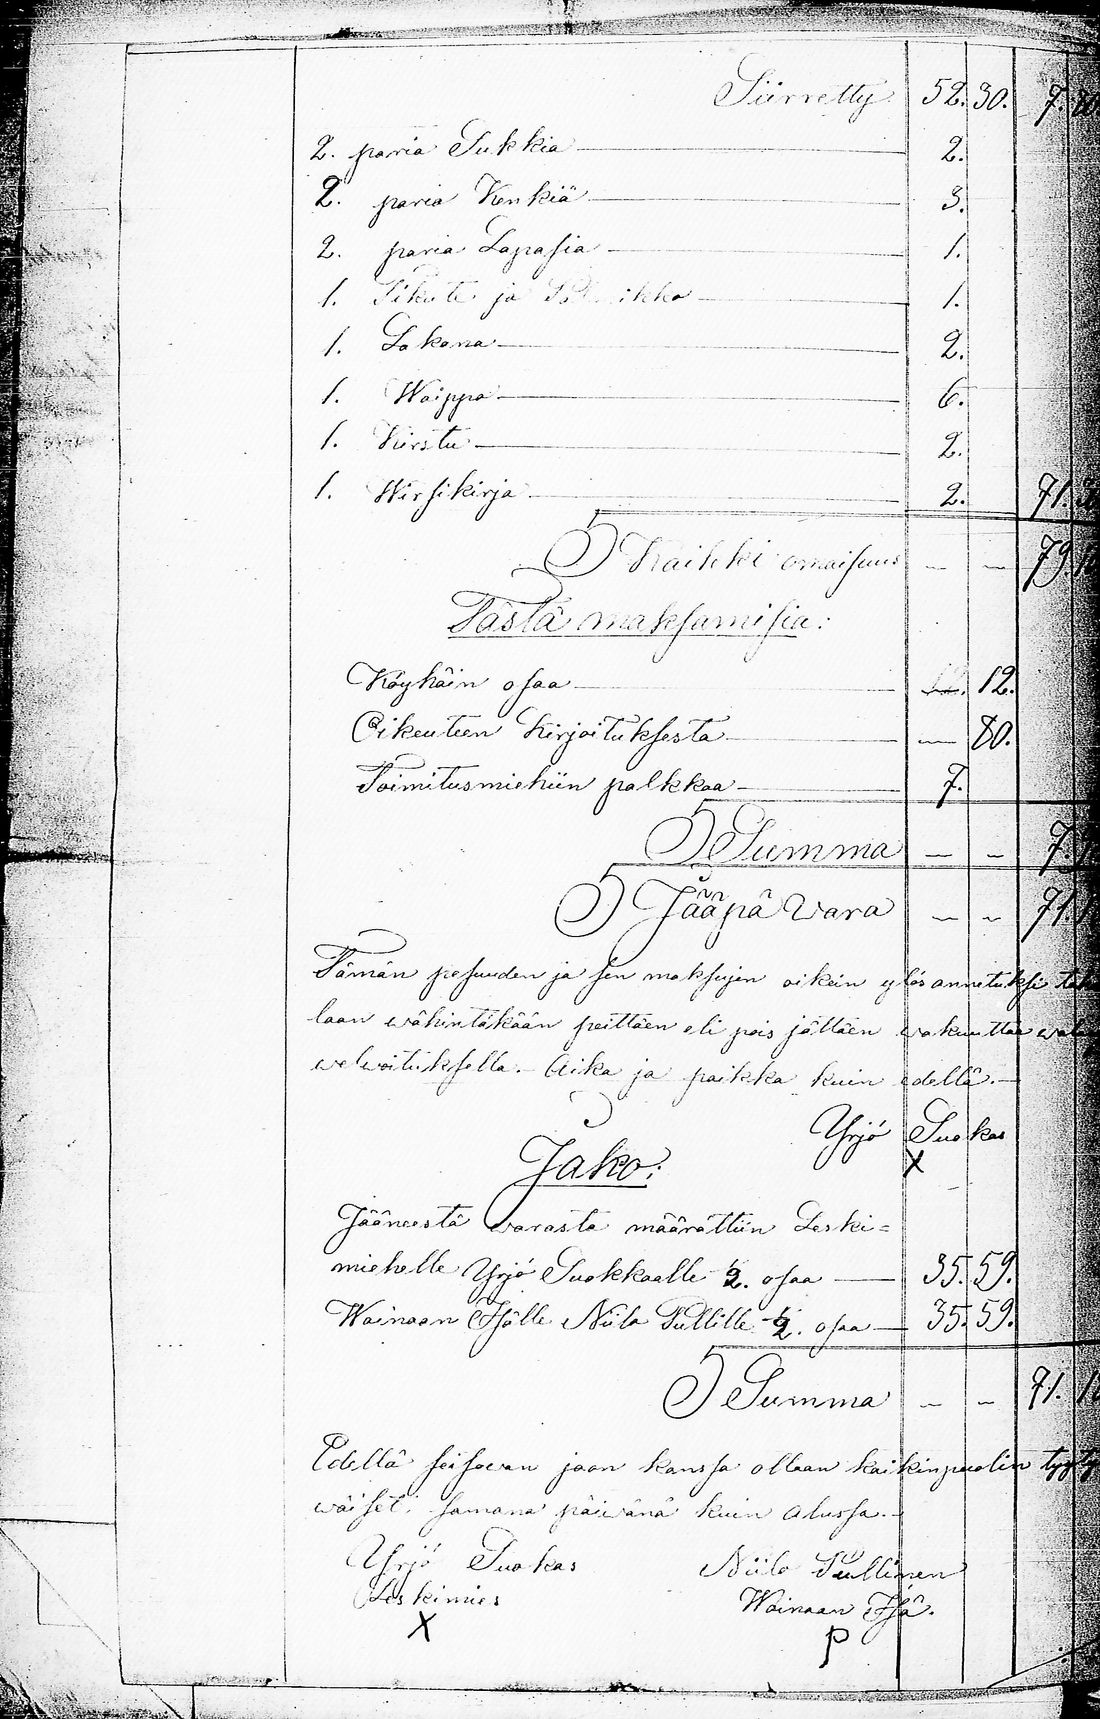 Siirretty 52. 30. 7.
2. paria Sukkia 2.
2. paria Kenkiä 3.
2. paria Lapasia 1.
1. ja 1.
1. Lakana 2.
1. Waippa 6.
1. Kirstu 2.
1. Wirsikirja 2. 71.
S Kaikki omaisuus — — 79.
Tästä maksamisia:
Köyhäin osaa 12.
Oikeuteen Kirjoituksesta — 80.
Toimitusmiehiin palkkaa 7.
S Summa — — 7.
S Jääpä Vara — — 71.
Tämän pesuuden ja sen maksujen oikein ylös annetuksi
laan wähintäkään peittäen eli pois jättäen wakuuttaa
welwoituksella. Aika ja paikka kuin edellä.
Yrjö Suokas
X
Jako:
Jääneestä warasta määrättiin Leski=
miehelle Yrjö Suokkaalle ½. osaa 35. 59.
Wainaan Isälle Niilo Tullille ½. osaa 35. 59.
S Summa — — 71.
Edellä seisowan jaon kanssa ollaan kaikinpuolin tyyty
wäiset. samana päiwänä kuin alussa.
Yrjö Suokas Niilo Tullinen
Leskimies Wainaan Isä.
X P